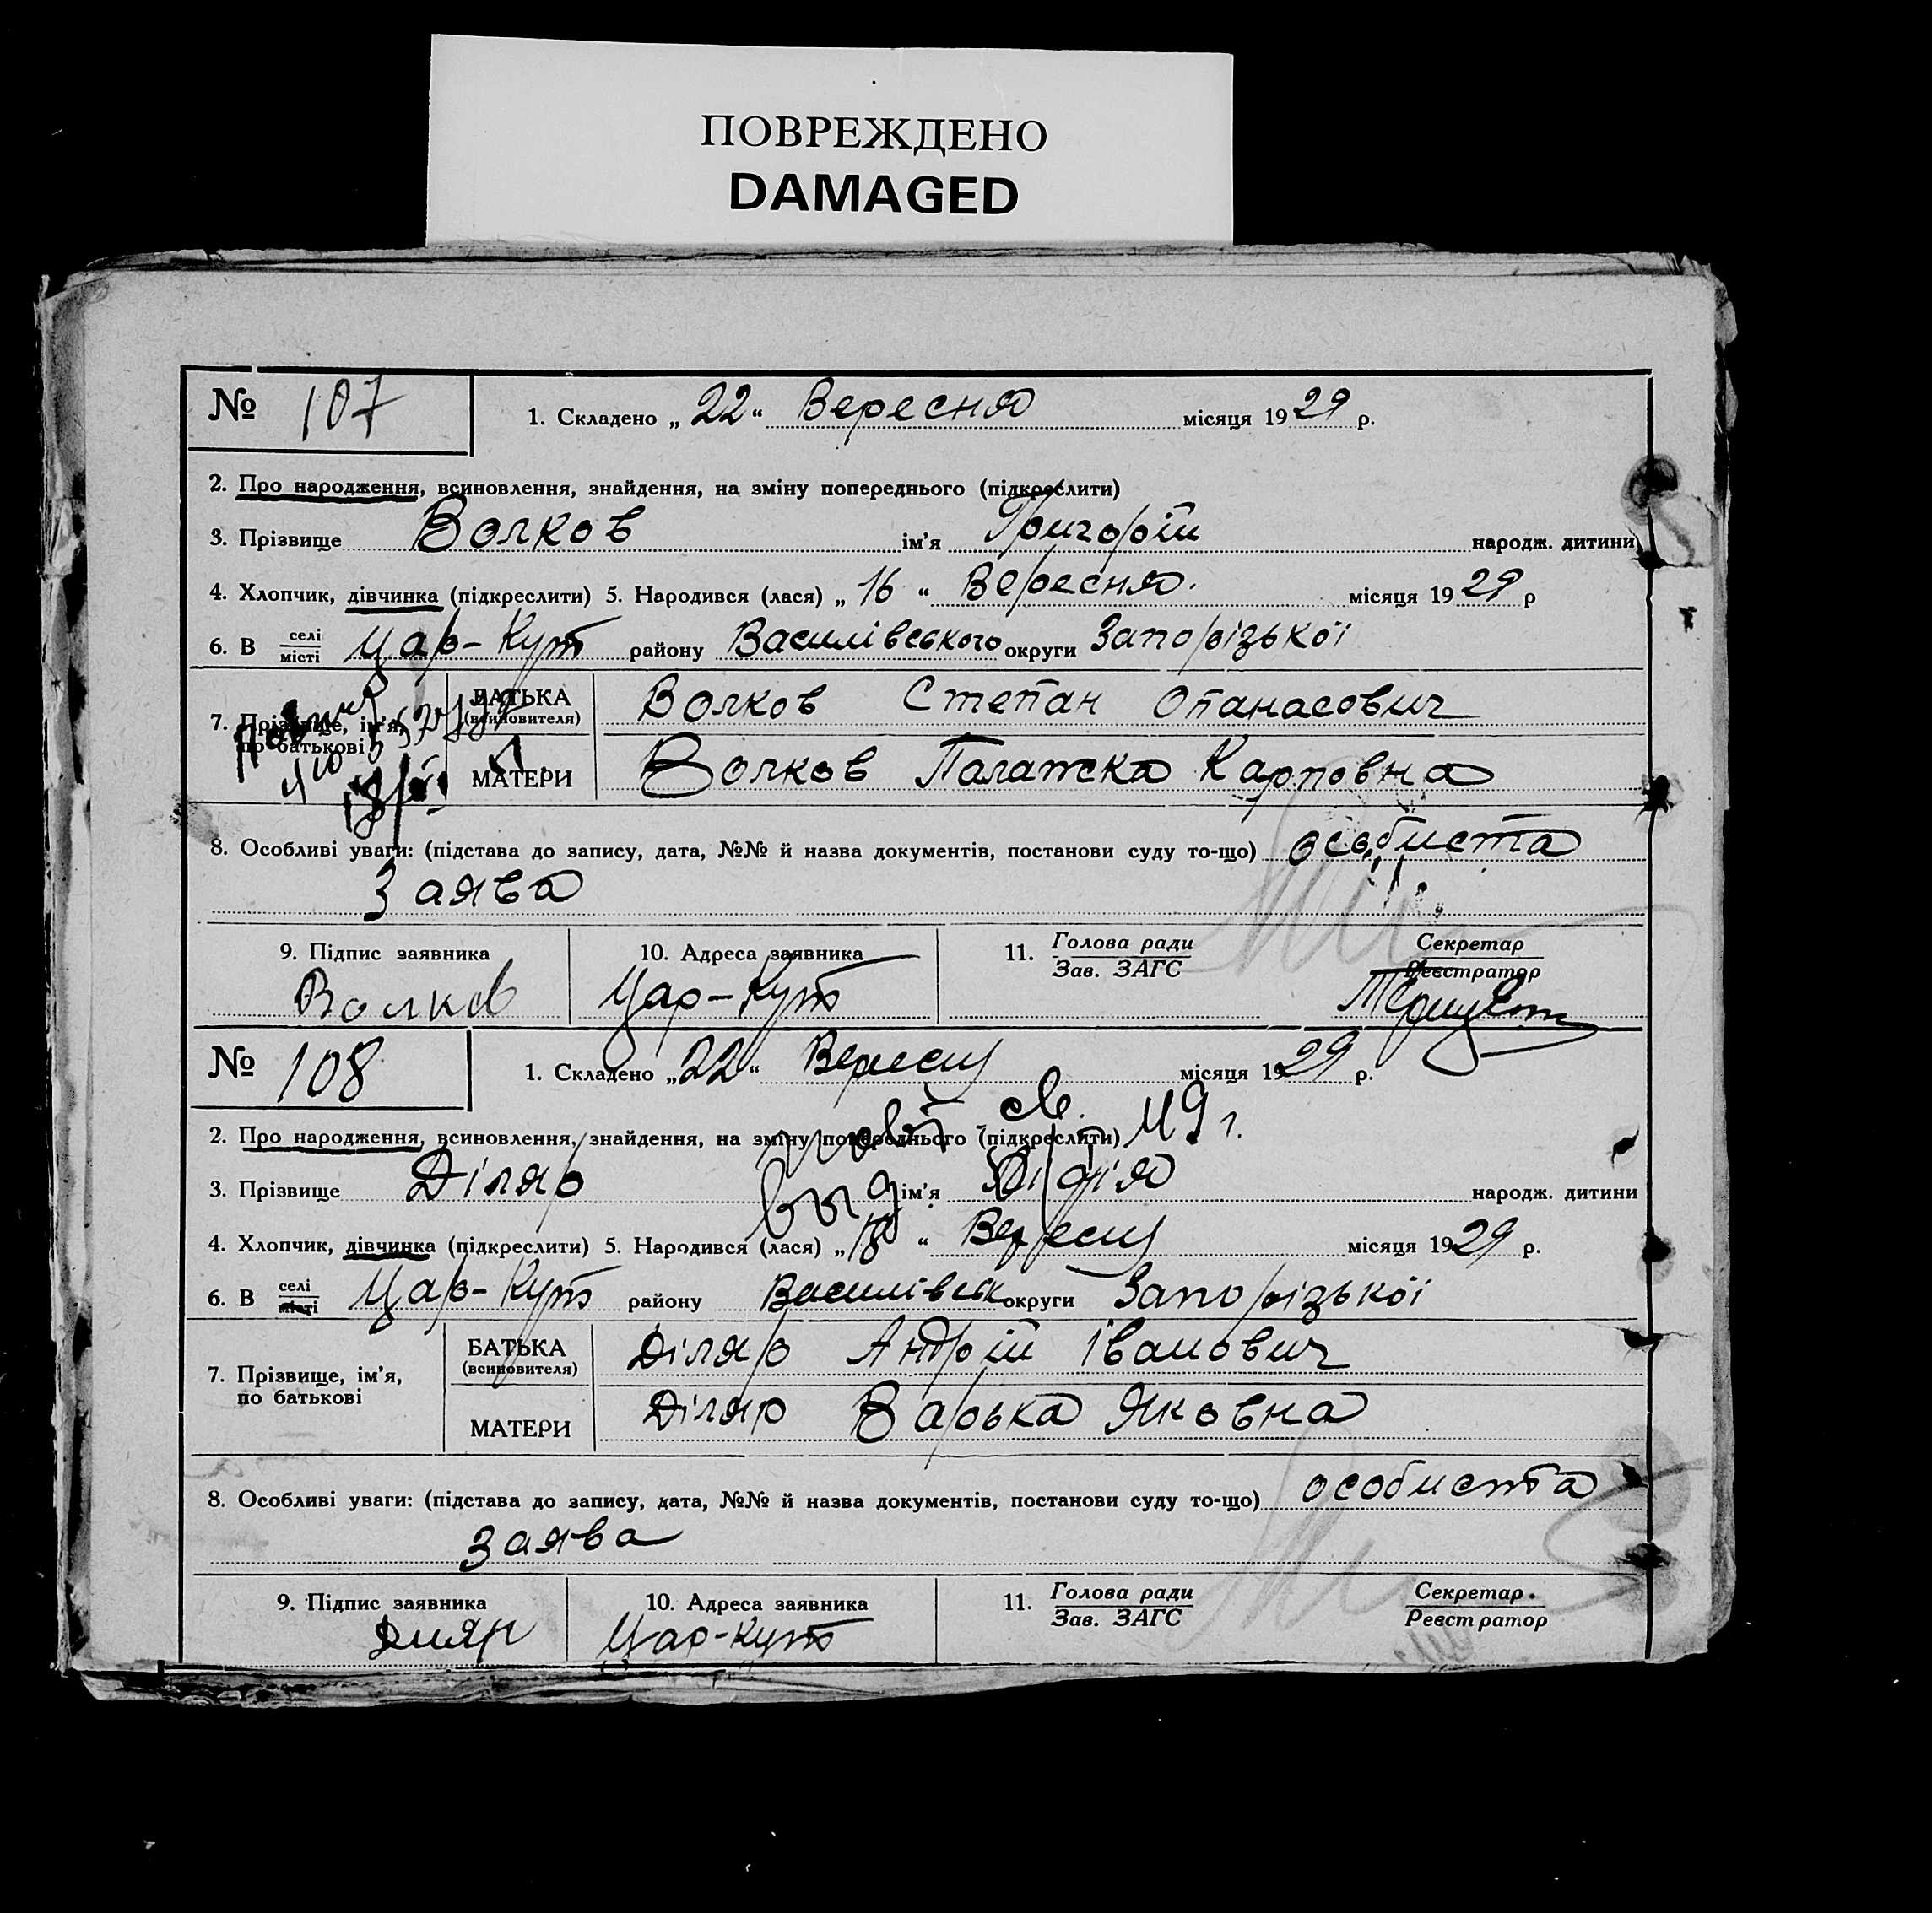 ПОВРЕЖДЕНО
DAMAGED
№ 107
1. Складено „ 22 “ Вересня місяця 1929 р.
2. Про народження, всиновлення, знайдення, на зміну попереднього (підкреслити)
3. Прізвище Волков ім'я Григорій народж. дитини
4. Хлопчик, дівчинка (підкреслити) 5. Народився (лася) „ 16 “ Вересня. місяця 1929 р
6. В селі місті Цар-Кут району Василівського округи Запорізької
7. Прізвище, ім'я, по батькові
БАТЬКА (всиновителя) Волков Степан Опанасович
МАТЕРИ Волков Палажка Карповна
8. Особливі уваги: (підстава до запису, дата, №№ й назва документів, постанови суду то-що) особиста
Заява
9. Підпис заявника 10. Адреса заявника 11. Голова ради Зав. ЗАГС Секретар Реєстратор
Волков Цар-Кут
№ 108
1. Складено „ 22 “ місяця 1929 р.
св.
2. Про народження, всиновлення, знайдення, на зміну попереднього (підкреслити) г.
3. Прізвище Діляр ім'я народж. дитини
4. Хлопчик, дівчинка (підкреслити) 5. Народився (лася) „ 18 “ місяця 1929 р.
6. В селі місті Цар-Кут району Василівськ округи Запорізької
7. Прізвище, ім'я, по батькові
БАТЬКА (всиновителя) Діляр Андрій Іванович
МАТЕРИ Діляр Варька Яковна
8. Особливі уваги: (підстава до запису, дата, №№ й назва документів, постанови суду то-що) особиста
заява
9. Підпис заявника 10. Адреса заявника 11. Голова ради Зав. ЗАГС Секретар Реєстратор
Цар-Кут